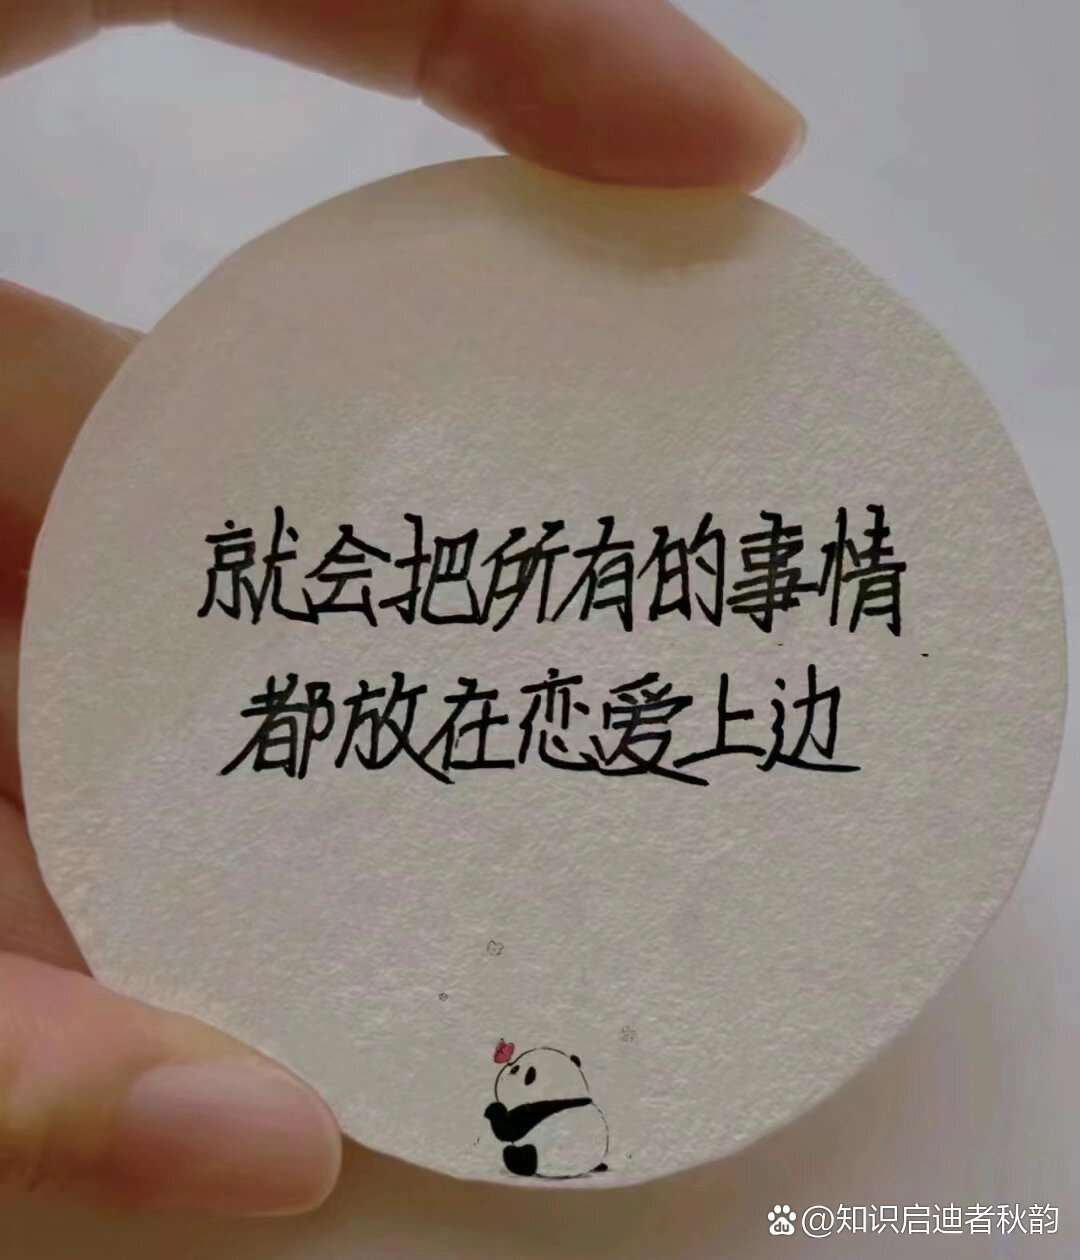 就会把所有的事情
都放在恋爱上边
du @知识启迪者秋韵